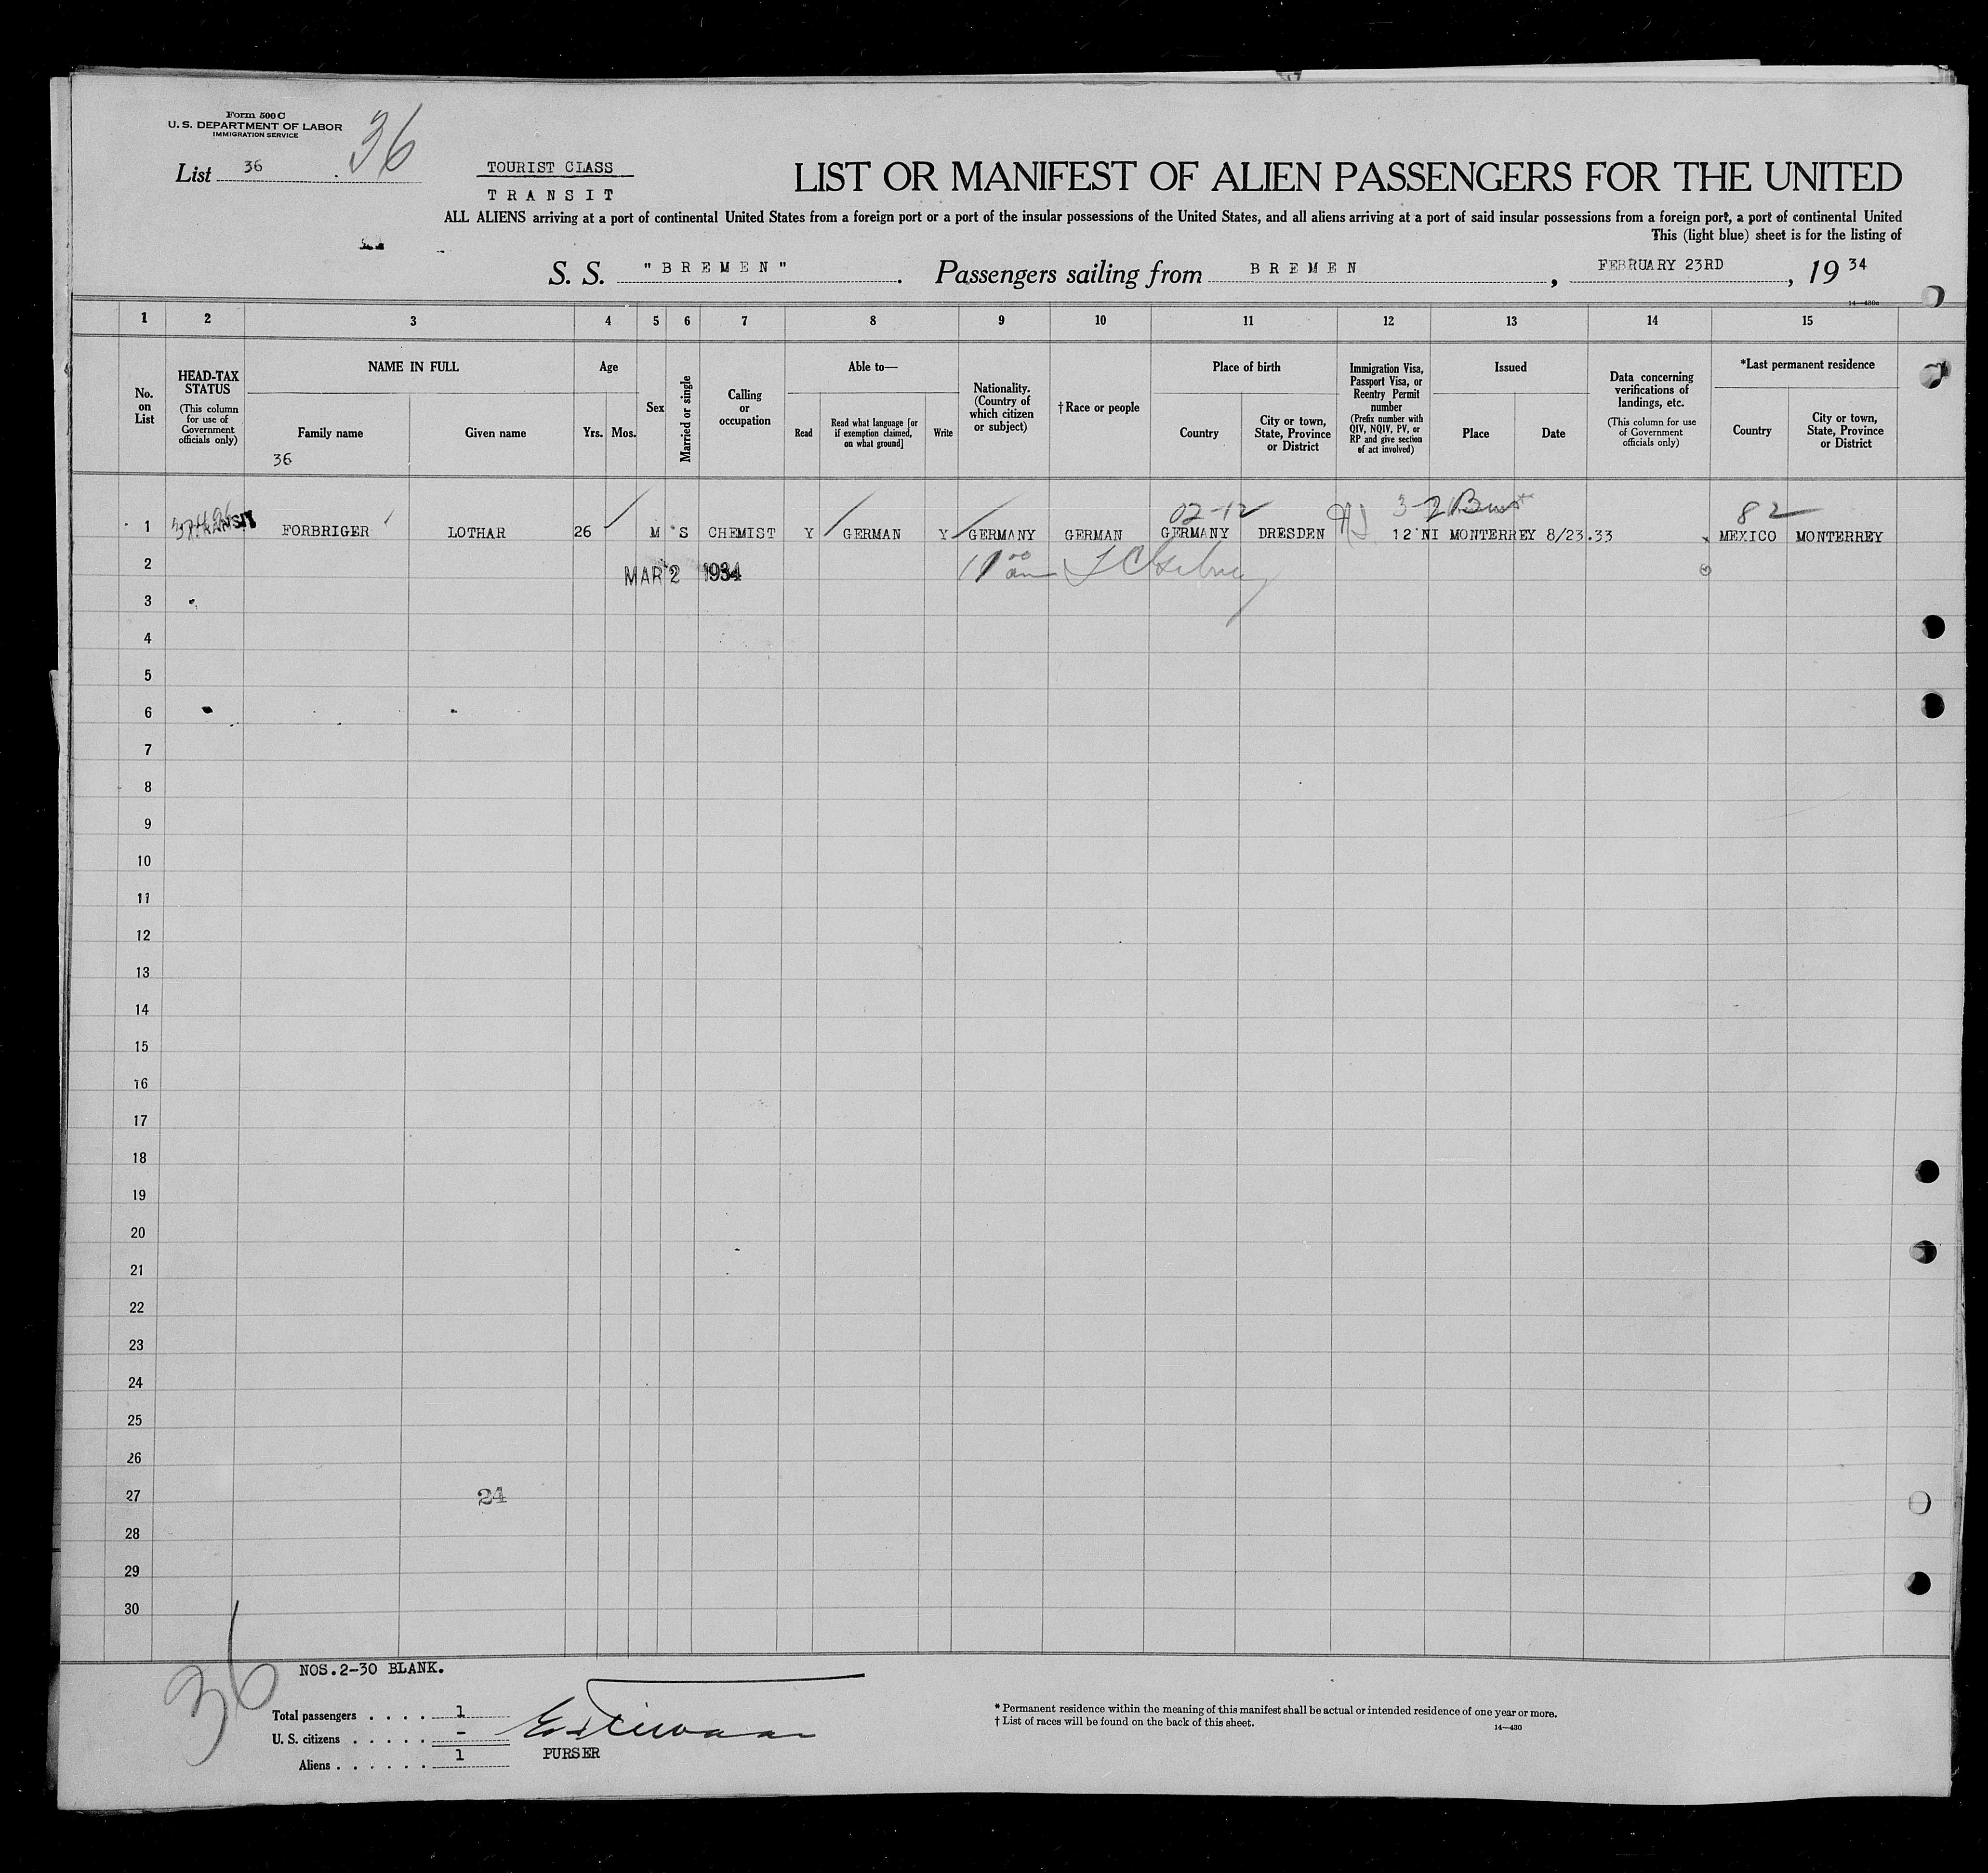 Form 500 C
U. S. DEPARTMENT OF LABOR
IMMIGRATION SERVICE
36
List 36
TOURIST CLASS
TRANSIT
LIST OR MANIFEST OF ALIEN PASSENGERS FOR THE UNITED
ALL ALIENS arriving at a port of continental United States from a foreign port or a port of the insular possessions of the United States, and all aliens arriving at a port of said insular possessions from a foreign port, a port of continental United
This (light blue) sheet is for the listing of
S. S. "BREMEN". Passengers sailing from BREMEN, FEBRUARY 23RD, 19 34
1 2 3 4 5 6 7 8 9 10 11 12 13 14 15
No. on List
HEAD-TAX STATUS
(This column for use of Government officials only)
NAME IN FULL
Family name
Given name
36
Age
Yrs. Mos.
Sex
Married or single
Calling or occupation
Able to—
Read
Read what language [or if exemption claimed, on what ground]
Write
Nationality. (Country of which citizen or subject)
† Race or people
Place of birth
Country
City or town, State, Province or District
Immigration Visa, Passport Visa, or Reentry Permit number
(Prefix number with QIV, NQIV, PV, or RP and give section of act involved)
Issued
Place
Date
Data concerning verifications of landings, etc.
(This column for use of Government officials only)
*Last permanent residence
Country
City or town, State, Province or District
02-12
82
1 TRANSIT FORBRIGER LOTHAR 26 M S CHEMIST Y GERMAN Y GERMANY GERMAN GERMANY DRESDEN 12 NI MONTERREY 8/23.33 MEXICO MONTERREY
2 MAR 2 1934
3
4
5
6
7
8
9
10
11
12
13
14
15
16
17
18
19
20
21
22
23
24
25
26
27 24
28
29
30
36
NOS.2-30 BLANK.
Total passengers . . . . 1
U. S. citizens . . . . . –
Aliens . . . . . . 1
PURSER
* Permanent residence within the meaning of this manifest shall be actual or intended residence of one year or more.
† List of races will be found on the back of this sheet.
14—430